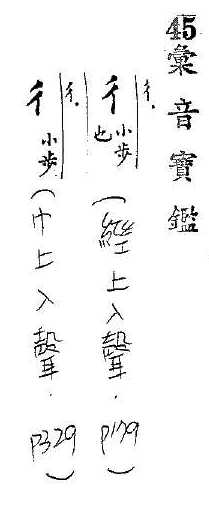 45彙音寶鑑
彳.
彳 小步也 (經上入聲. P179)
彳.
彳 小步 (巾上入聲. P329)